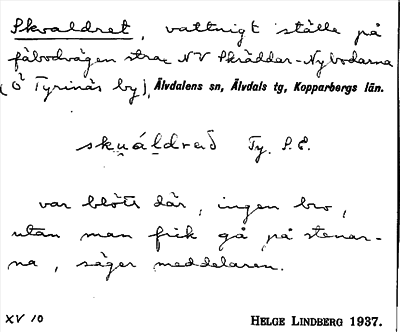 Skvaldret, vattnigt ställe på
fäbodvägen strax NV Skräddar-Nybodarna
(Ö Tyrinäs by), Älvdalens sn, Älvdals tg, Kopparbergs län.
Ty. S.E.
var blött där, ingen bro,
utan man fick gå på stenar-
na, säger meddelaren.
XV 10 HELGE LINDBERG 1937.